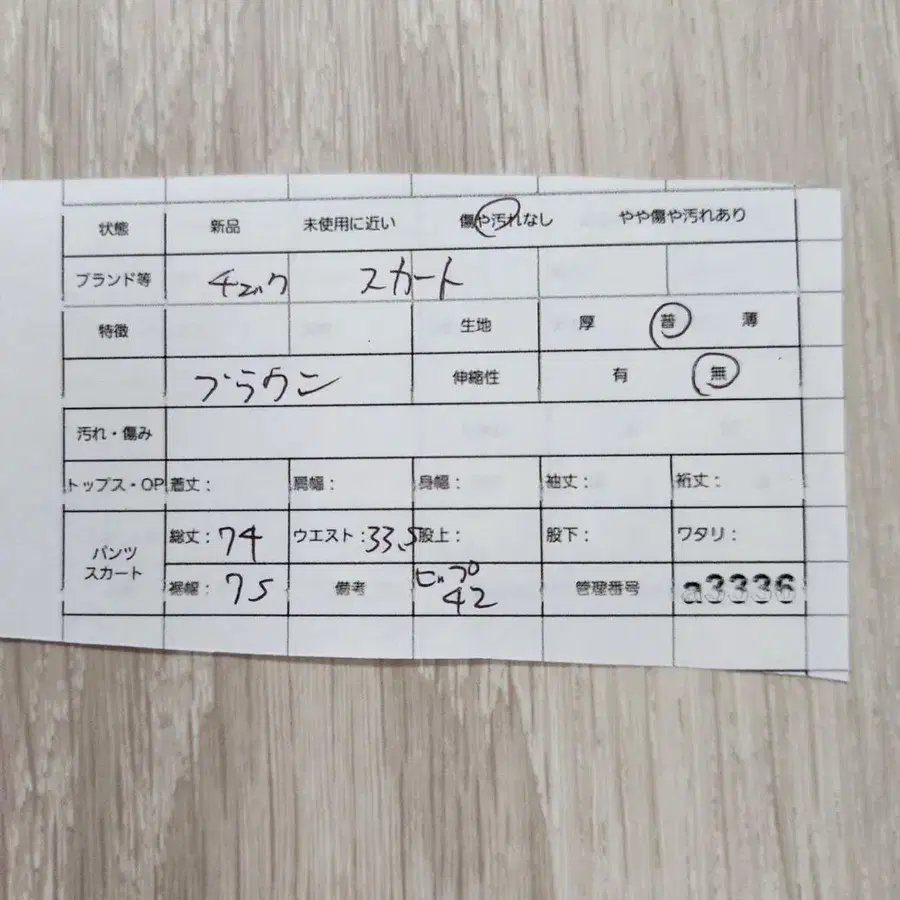 状態 新品 未使用に近い 傷や汚れなし やや傷や汚れあり
ブランド等 チェック スカート
特徴 生地 厚 普 薄
ブラウン 伸縮性 有 無
汚れ・傷み
トップス・OP 着丈： 肩幅： 身幅： 袖丈： 裄丈：
パンツ
スカート
総丈：74 ウエスト：33.5 股上： 股下： ワタリ：
裾幅：75 備考 ヒップ
42
管理番号 a3336